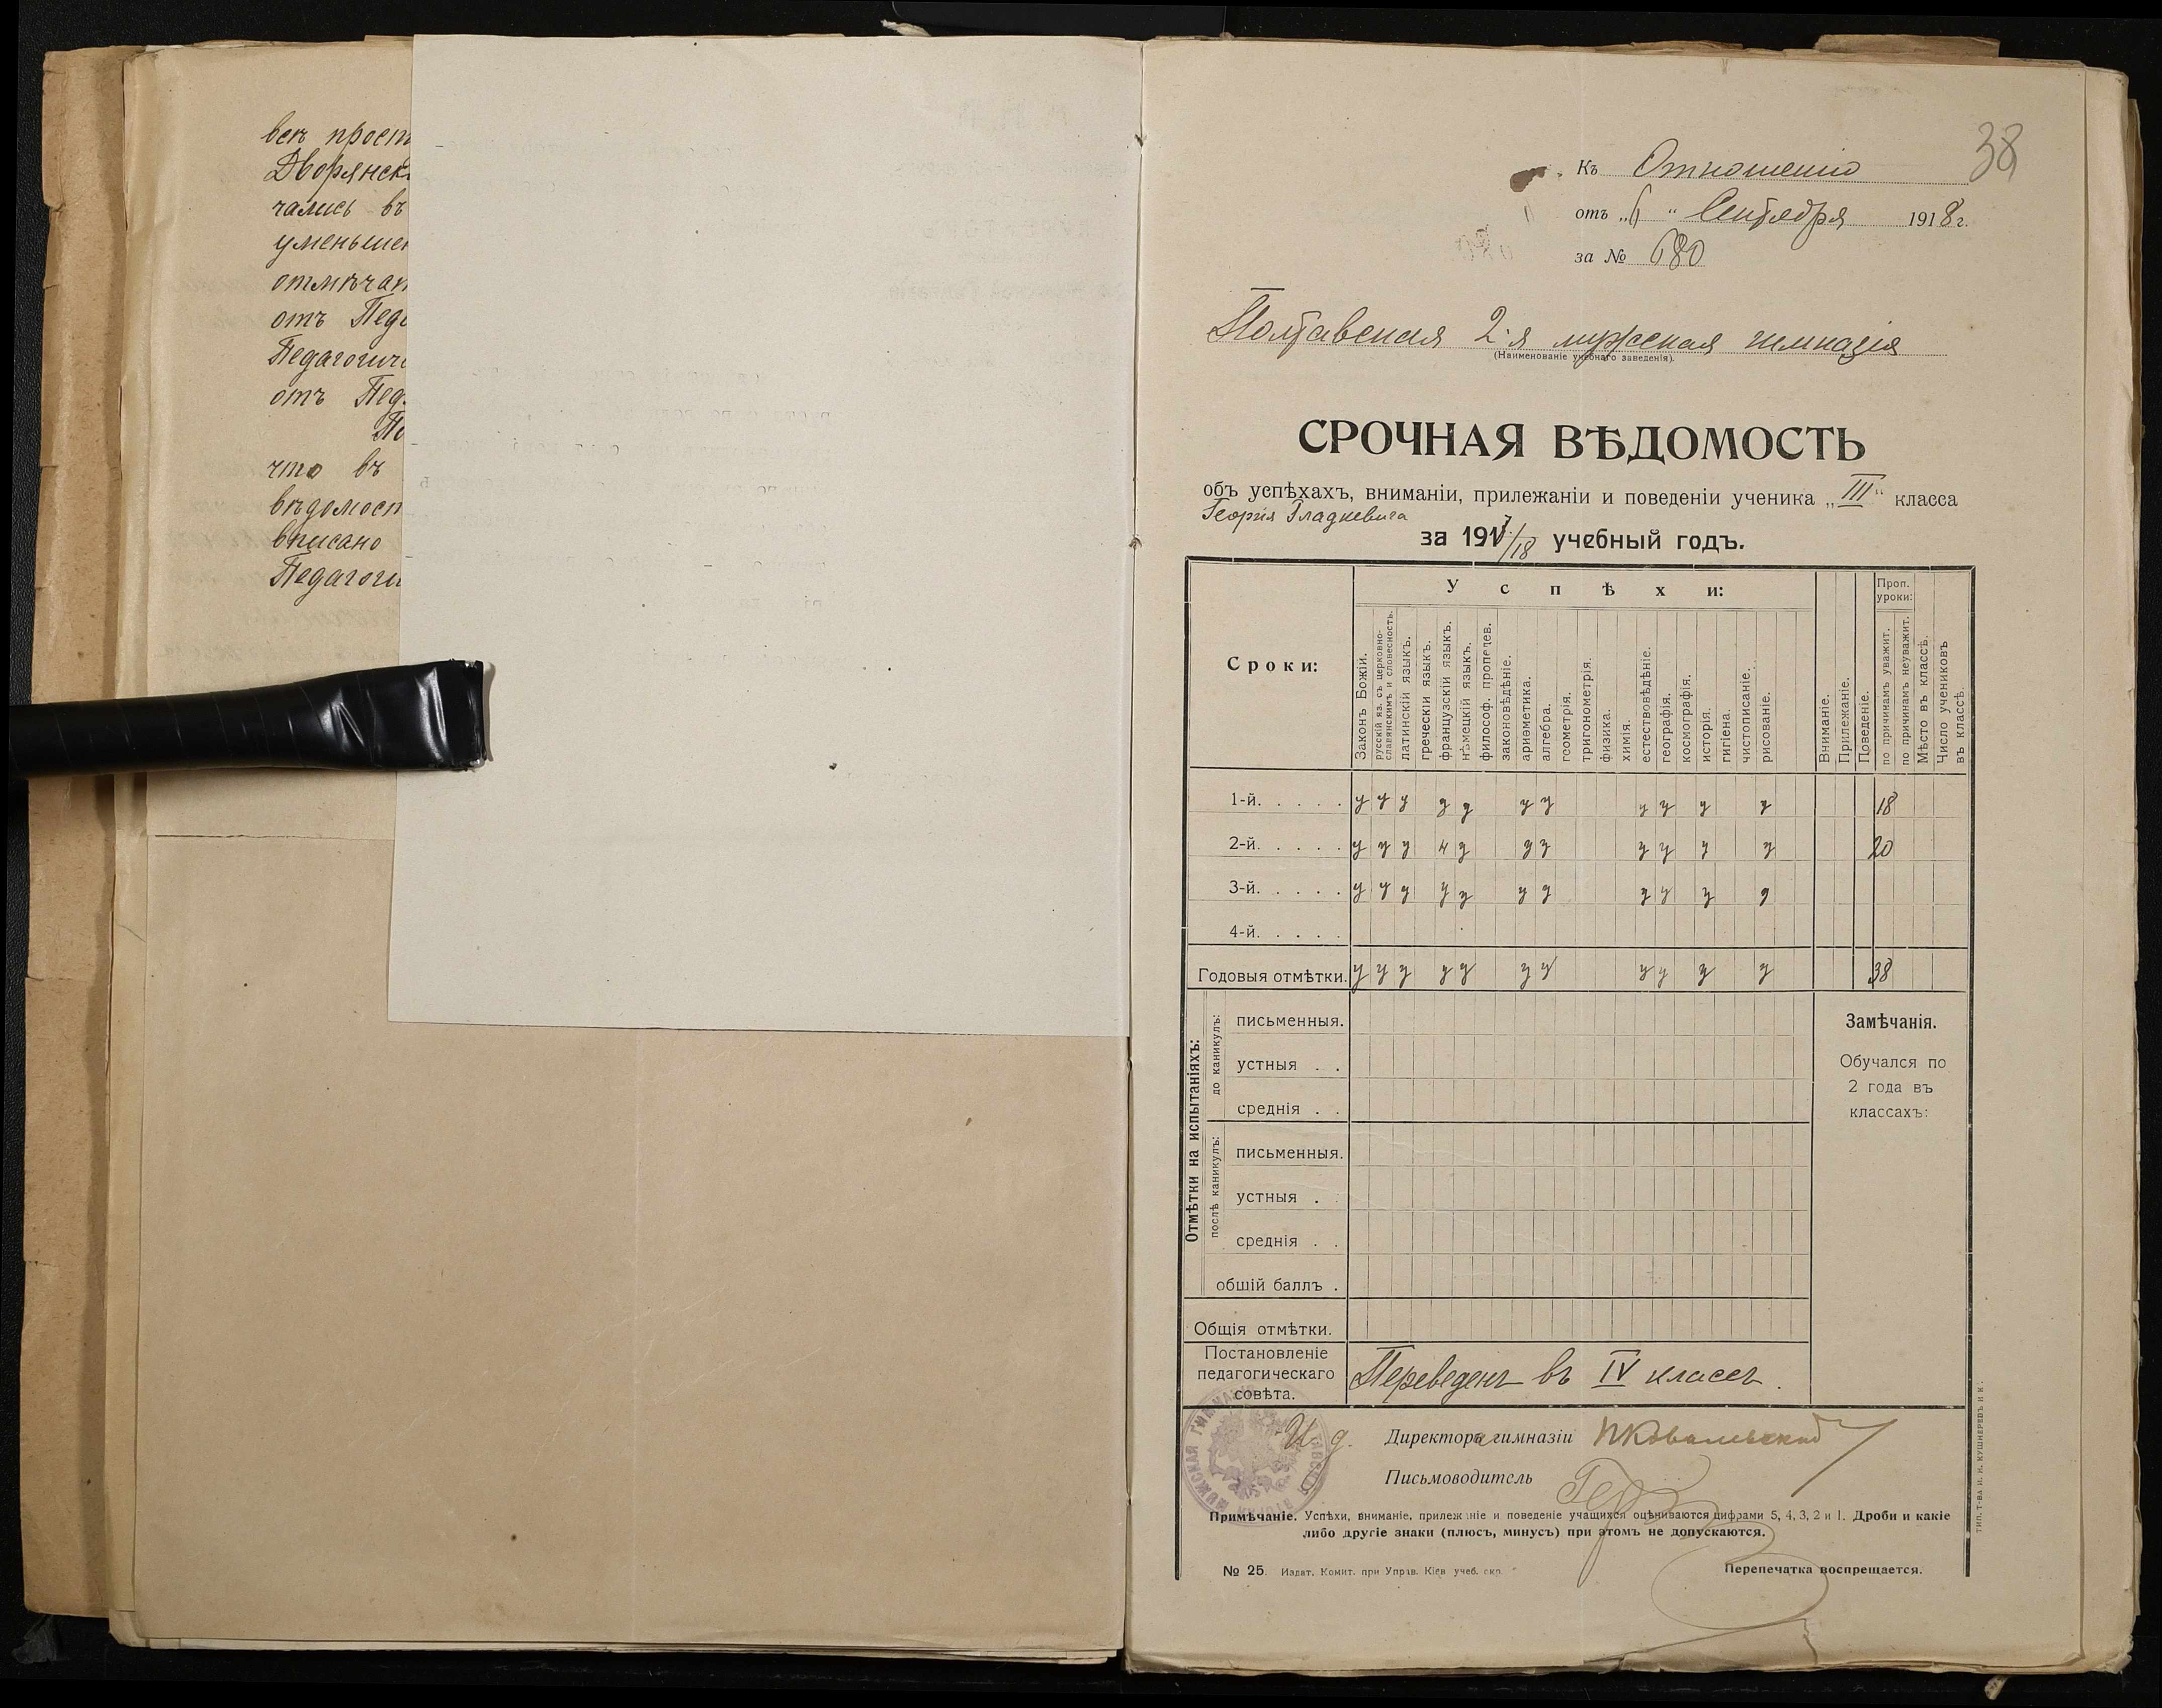 всѣ
Дворянск
чались въ
уменьшен
отмѣчан
отъ Педа
Педагогиче
отъ Пед
По
что въ
вѣдомост
вписано
Педагоги
38
Къ Отношенію
отъ „6 “ Сентября 1918 г.
за № 680
Полтавская 2-я мужская гимназія
(Наименованіе учебнаго заведенія).
СРОЧНАЯ ВѢДОМОСТЬ
объ успѣхахъ, вниманіи, прилежаніи и поведеніи ученика „III“ класса
Георгія Гладкевича
за 1917/18 учебный годъ.
Сроки:
Успѣхи:
Законъ Божій.
русскій яз. съ церковно-славянскимъ и словесность.
латинскій языкъ.
греческій языкъ.
французскій языкъ.
нѣмецкій языкъ.
философ. пропедев.
законовѣдѣніе.
ариѳметика.
алгебра.
геометрія.
тригонометрія.
физика.
химія.
естествовѣдѣніе.
географія.
космографія.
исторія.
гигіена.
чистописаніе.
рисованіе.
Вниманіе.
Прилежаніе.
Поведеніе.
Проп. уроки:
по причинамъ уважит.
по причинамъ неуважит.
Мѣсто въ классѣ.
Число учениковъ въ классѣ.
1-й. . . . . у у у у у у у у у у у 18
2-й. . . . . у у у у у у у у у у у 20
3-й. . . . . у у у у у у у у у у у
4-й. . . . .
Годовыя отмѣтки. у у у у у у у у у у у 38
Отмѣтки на испытаніяхъ:
до каникулъ:
письменныя.
устныя . .
среднія . .
послѣ каникулъ:
письменныя.
устныя .
среднія . .
общій баллъ .
Замѣчанія.
Обучался по
2 года въ
классахъ:
Общія отмѣтки.
Постановленіе
педагогическаго
совѣта.
Переведенъ въ IV классъ.
И. д. Директора гимназіи ПКовальскій
Письмоводитель
Примѣчаніе. Успѣхи, вниманіе, прилежаніе и поведеніе учащихся оцѣниваются цифрами 5, 4, 3, 2 и 1. Дроби и какіе
либо другіе знаки (плюсъ, минусъ) при этомъ не допускаются.
№ 25. Издат. Комит. при Управ. Кіев учеб. окр.
Перепечатка воспрещается.
ТИП. Т-ВА И. Н. КУШНЕРЕВЪ И К.